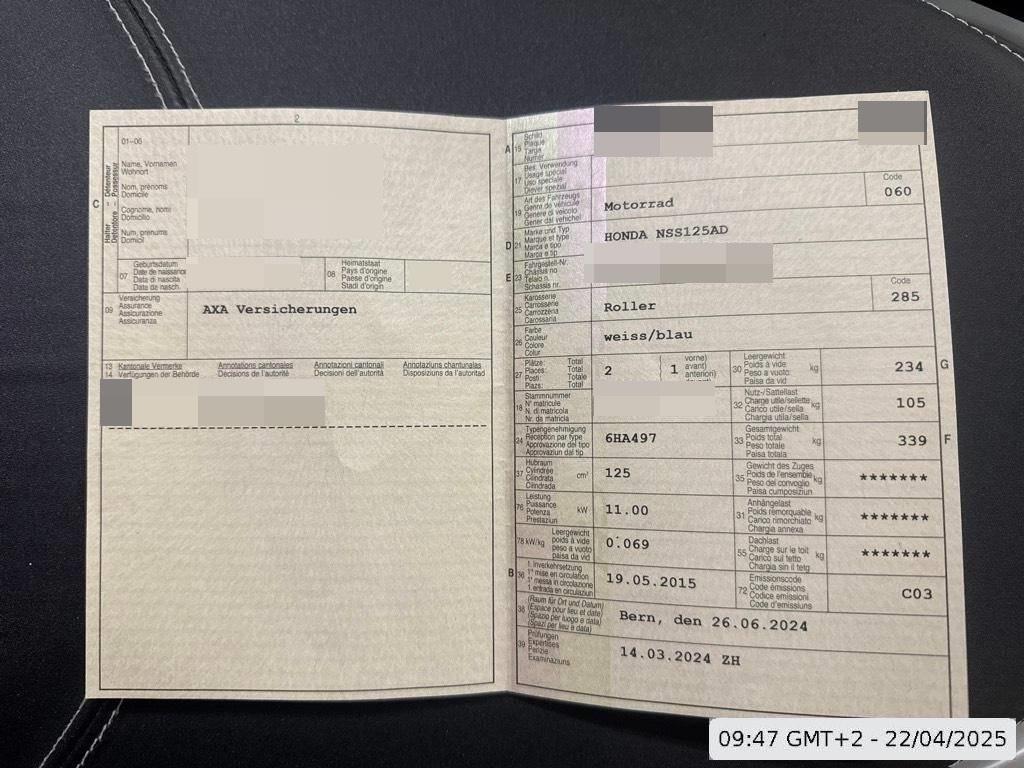 2
01–06
Name, Vornamen
Wohnort
Nom, prénoms
Domicile
Cognome, nomi
Domicilio
Num, prenums
Domicil
C
Halter – Détenteur
Detentore – Possessur
07
Geburtsdatum
Date de naissance
Data di nascita
Data da nasch.
08
Heimatstaat
Pays d'origine
Paese d'origine
Stadi d'origin
09
Versicherung
Assurance
Assicurazione
Assicuranza
AXA Versicherungen
13 Kantonale Vermerke
14 Verfügungen der Behörde
Annotations cantonales
Décisions de l'autorité
Annotazioni cantonali
Decisioni dell'autorità
Annotaziuns chantunalas
Disposiziuns da l'autoritad
A 15
Schild
Plaque
Targa
Numer
17
Bes. Verwendung
Usage spécial
Uso speciale
Diever spezial
19
Art des Fahrzeugs
Genre de véhicule
Genere di veicolo
Gener dal vehichel
Motorrad
Code
060
D 21
Marke und Typ
Marque et type
Marca e tipo
Marca e tip
HONDA NSS125AD
E 23
Fahrgestell-Nr.
Châssis no
Telaio n.
Schassis nr.
25
Karosserie
Carrosserie
Carrozzeria
Carossaria
Roller
Code
285
26
Farbe
Couleur
Colore
Colur
weiss/blau
27
Plätze: Total
Places: Total
Posti: Totale
Plazs: Total
2
1
vorne)
avant)
anteriori)
30
Leergewicht
Poids à vide
Peso a vuoto
Paisa da vid
kg
234
G
18
Stammnummer
N° matricule
N. di matricola
Nr. da matricla
32
Nutz-/Sattellast
Charge utile/sellette
Carico utile/sella
Chargia utila/sella
kg
105
24
Typengenehmigung
Réception par type
Approvazione del tipo
Approvaziun dal tip
6HA497
33
Gesamtgewicht
Poids total
Peso totale
Paisa totala
kg
339
F
37
Hubraum
Cylindrée
Cilindrata
Cilindrada
cm³
125
35
Gewicht des Zuges
Poids de l'ensemble
Peso del convoglio
Paisa cumposiziun
kg
*******
76
Leistung
Puissance
Potenza
Prestaziun
kW
11.00
31
Anhängelast
Poids remorquable
Carico rimorchiato
Chargia annexa
kg
*******
78 kW/kg
Leergewicht
poids à vide
peso a vuoto
paisa da vid
0.069
55
Dachlast
Charge sur le toit
Carico sul tetto
Chargia sin il tetg
kg
*******
B 36
1. Inverkehrsetzung
1re mise en circulation
1a messa in circolazione
1. entrada en circulaziun
19.05.2015
72
Emissionscode
Code émissions
Codice emissioni
Code d'emissiuns
C03
38
(Raum für Ort und Datum)
(Espace pour lieu et date)
(Spazio per luogo e data)
(Spazi per lieu e data)
Bern, den 26.06.2024
39
Prüfungen
Expertises
Perizie
Examinaziuns
14.03.2024 ZH
09:47 GMT+2 - 22/04/2025